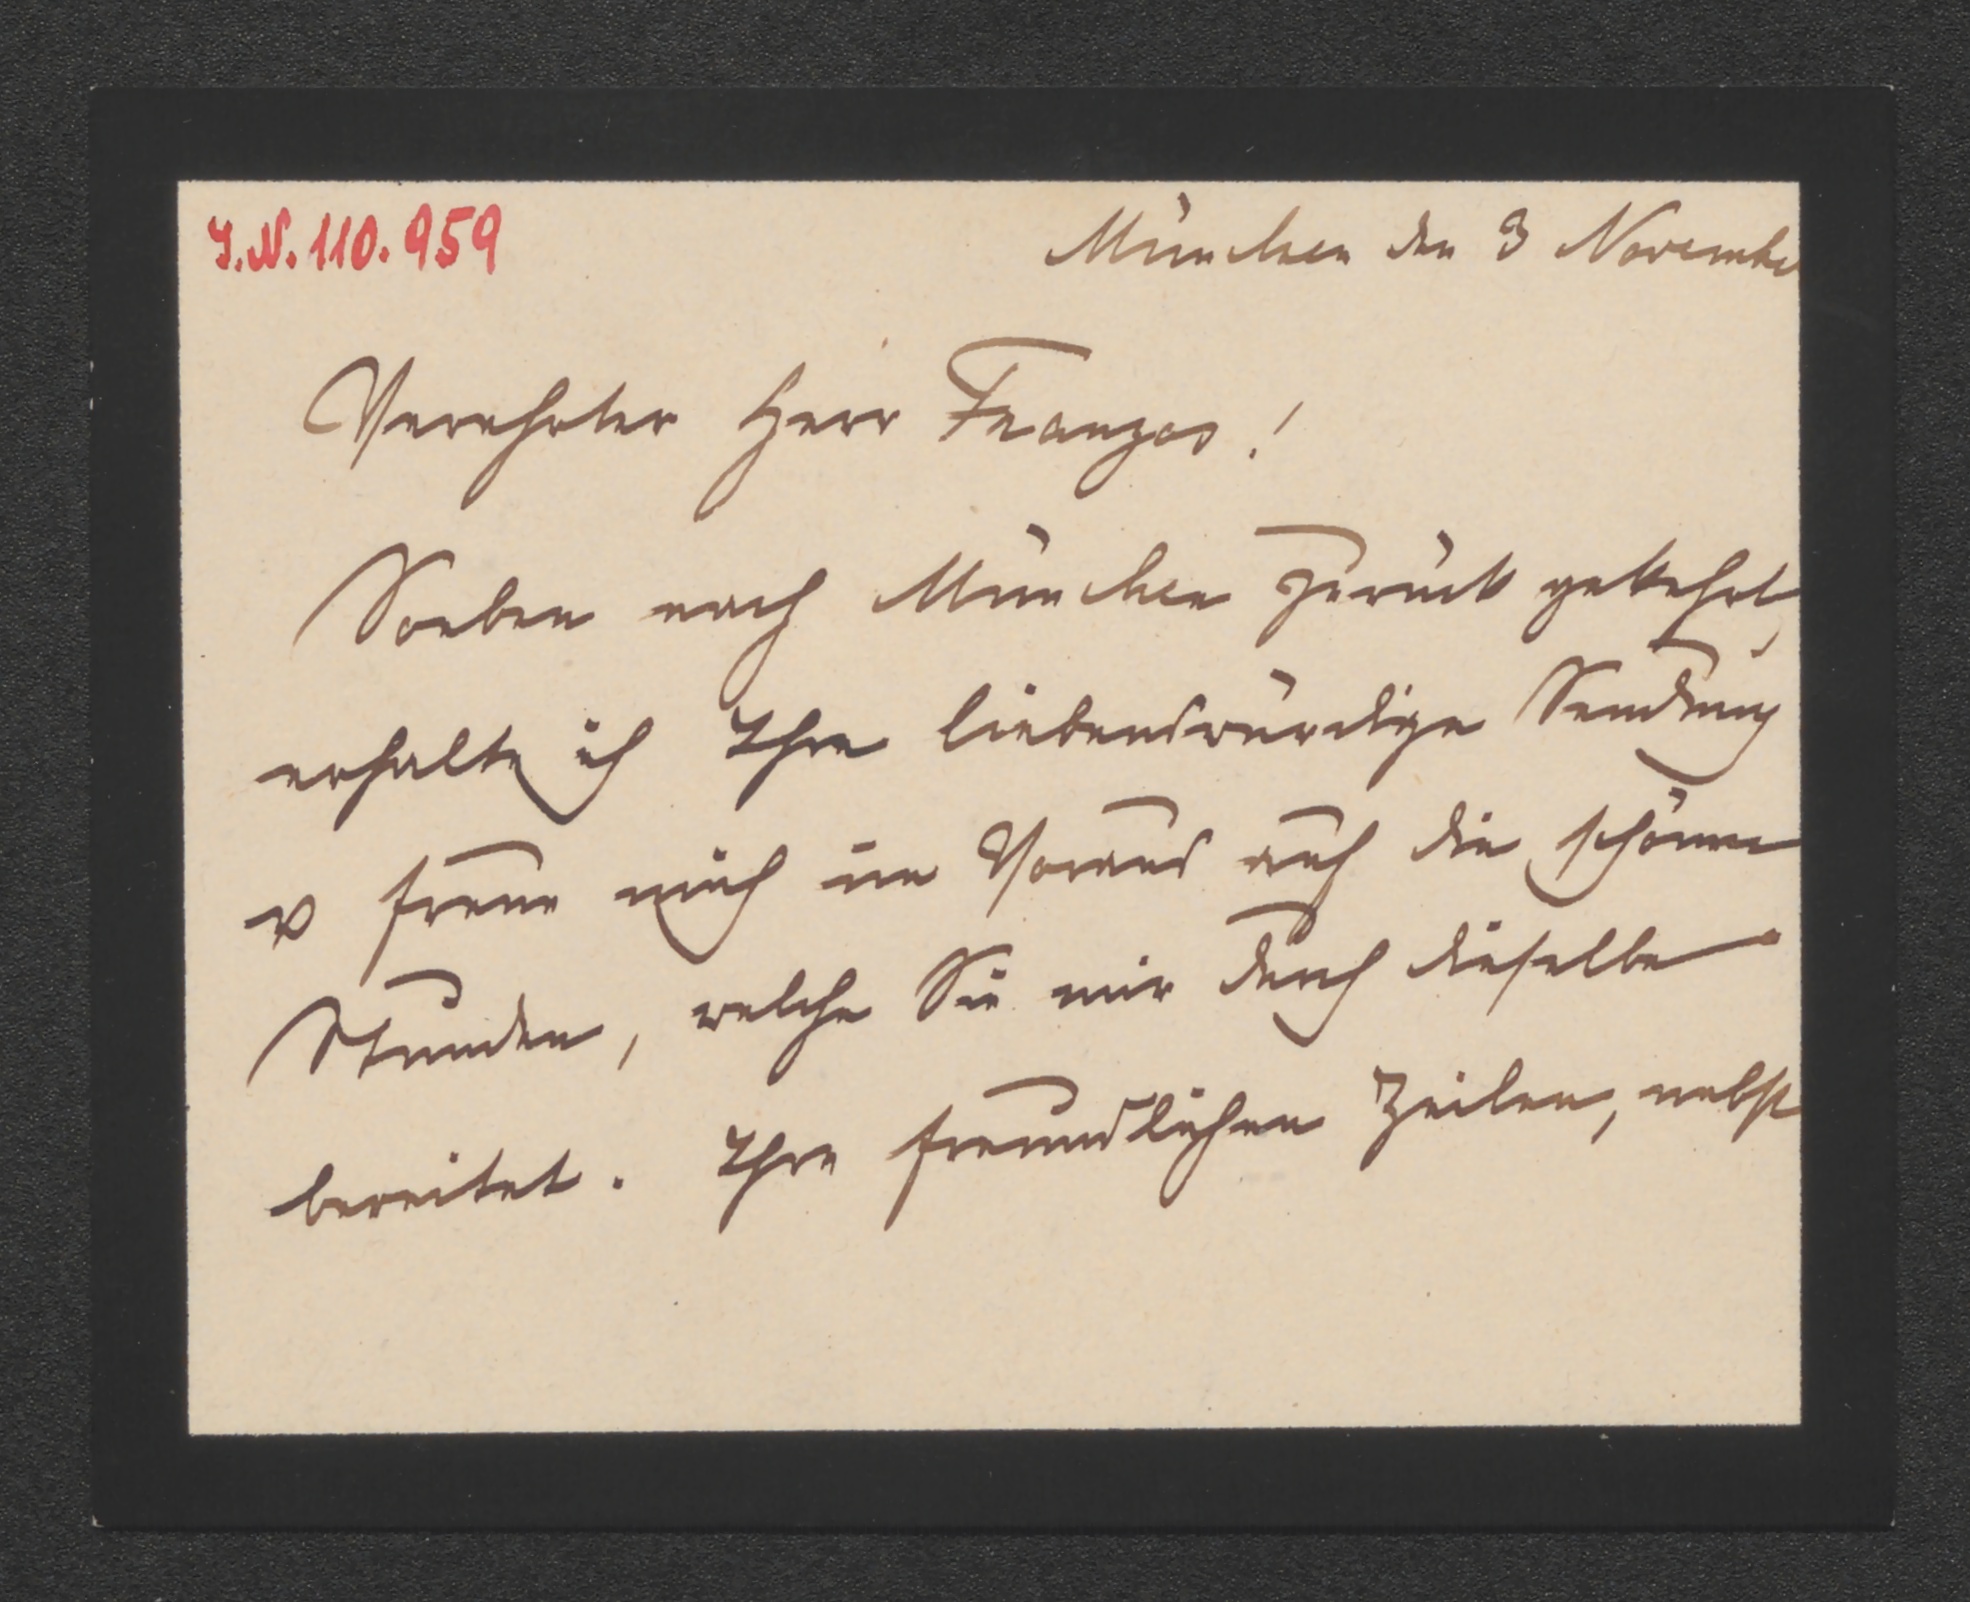 I.N. 110.959
München den 3 Novembe
Verehrter Herr Franzos!
Soeben nach München zurück gekehrt,
erhalte ich Ihre liebenswürdige Sendung
u freue mich im Voraus auf die schönen
Stunden, welche Sie mir durch dieselbe
bereitet. Ihre freundlichen Zeilen, nebst